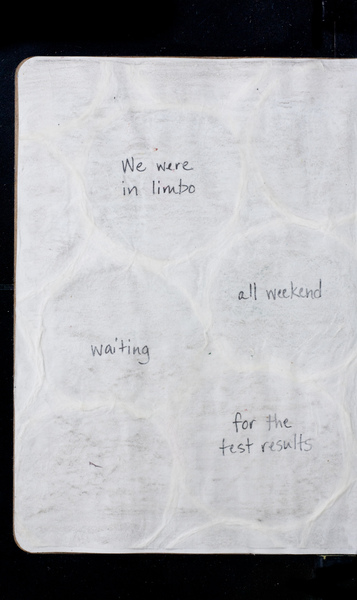 We were
in limbo
all weekend
waiting
for the
test results